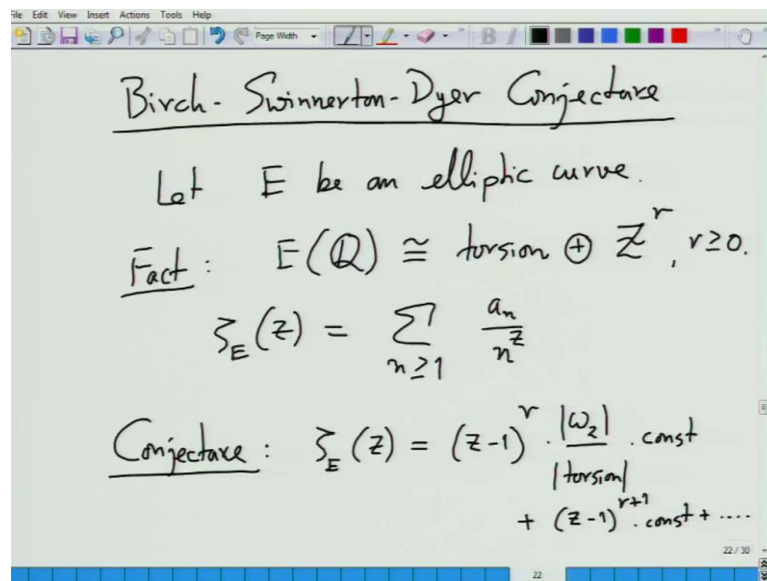 File Edit View Insert Actions Tools Help
Page Width
Birch-Swinnerton-Dyer Conjecture
Let E be an elliptic curve.
Fact: E(ℚ) ≅ torsion ⊕ ℤ^r, r≥0.
ζ_E(z) = Σ_{n≥1} a_n/n^z
Conjecture: ζ_E(z) = (z-1)^r · |ω_2|/|torsion| · const
+ (z-1)^{r+1} · const + ....
22 / 30
22